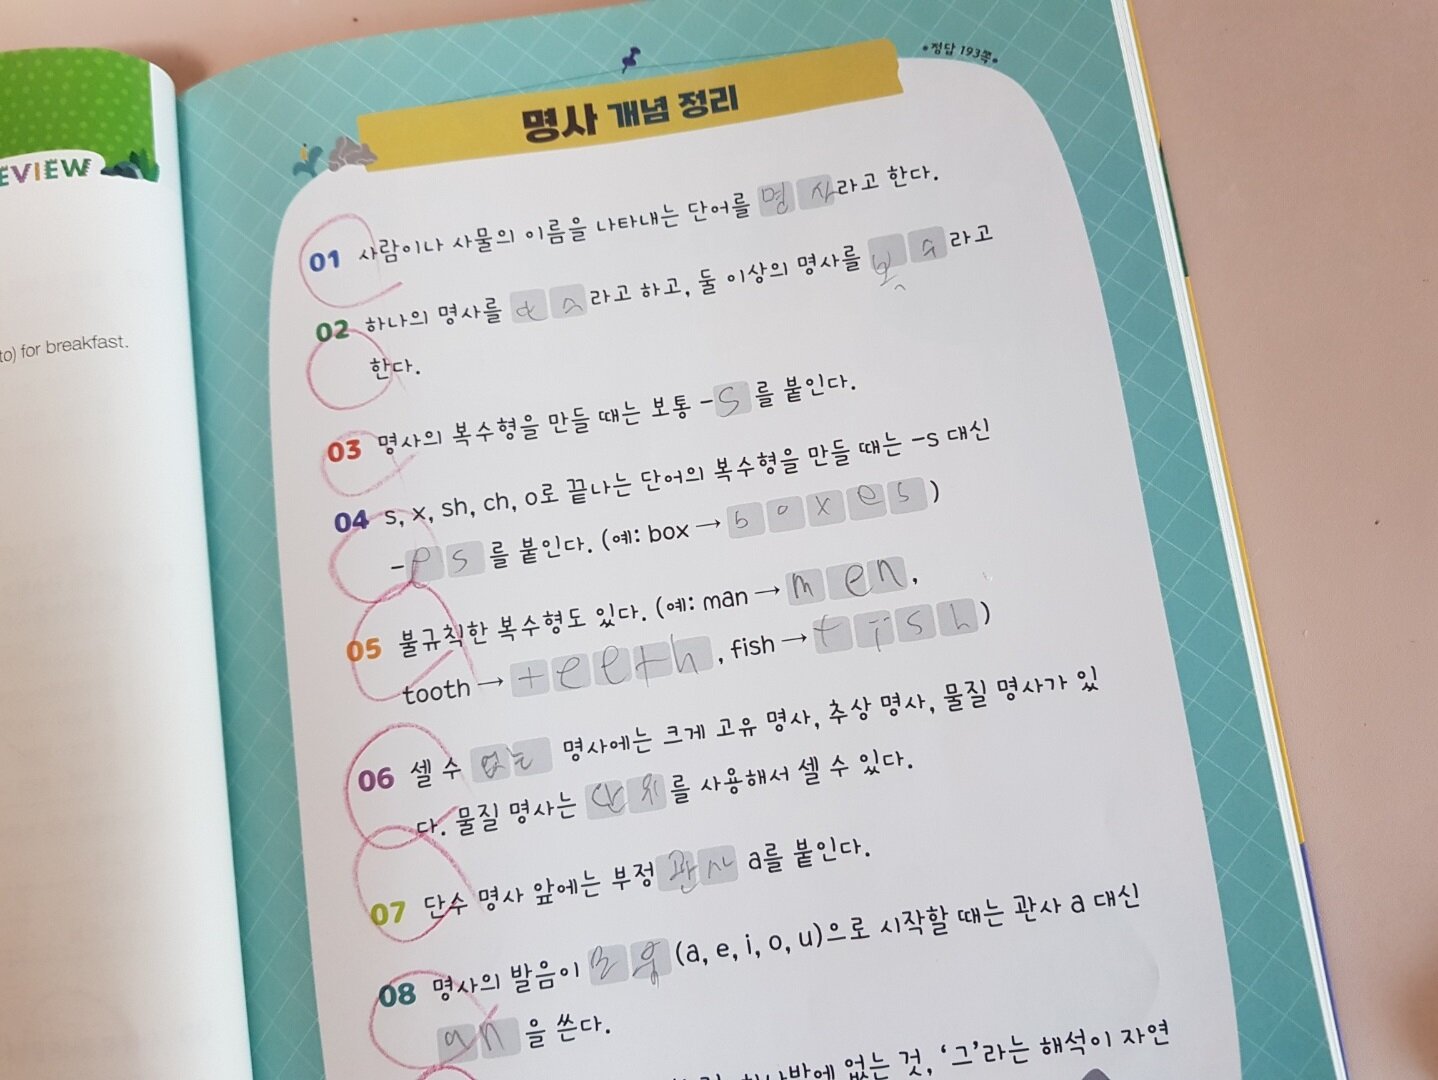 EVIEW
to) for breakfast.
•정답 193쪽•
명사 개념 정리
01 사람이나 사물의 이름을 나타내는 단어를 명사라고 한다.
02 하나의 명사를 단수라고 하고, 둘 이상의 명사를 복수라고
한다.
03 명사의 복수형을 만들 때는 보통 -s를 붙인다.
04 s, x, sh, ch, o로 끝나는 단어의 복수형을 만들 때는 -s 대신
-es를 붙인다. (예: box → boxes)
05 불규칙한 복수형도 있다. (예: man → men,
tooth → teeth, fish → fish)
06 셀 수 없는 명사에는 크게 고유 명사, 추상 명사, 물질 명사가 있
다. 물질 명사는 단위를 사용해서 셀 수 있다.
07 단수 명사 앞에는 부정관사 a를 붙인다.
08 명사의 발음이 모음(a, e, i, o, u)으로 시작할 때는 관사 a 대신
an을 쓴다.
하나밖에 없는 것, ‘그’라는 해석이 자연